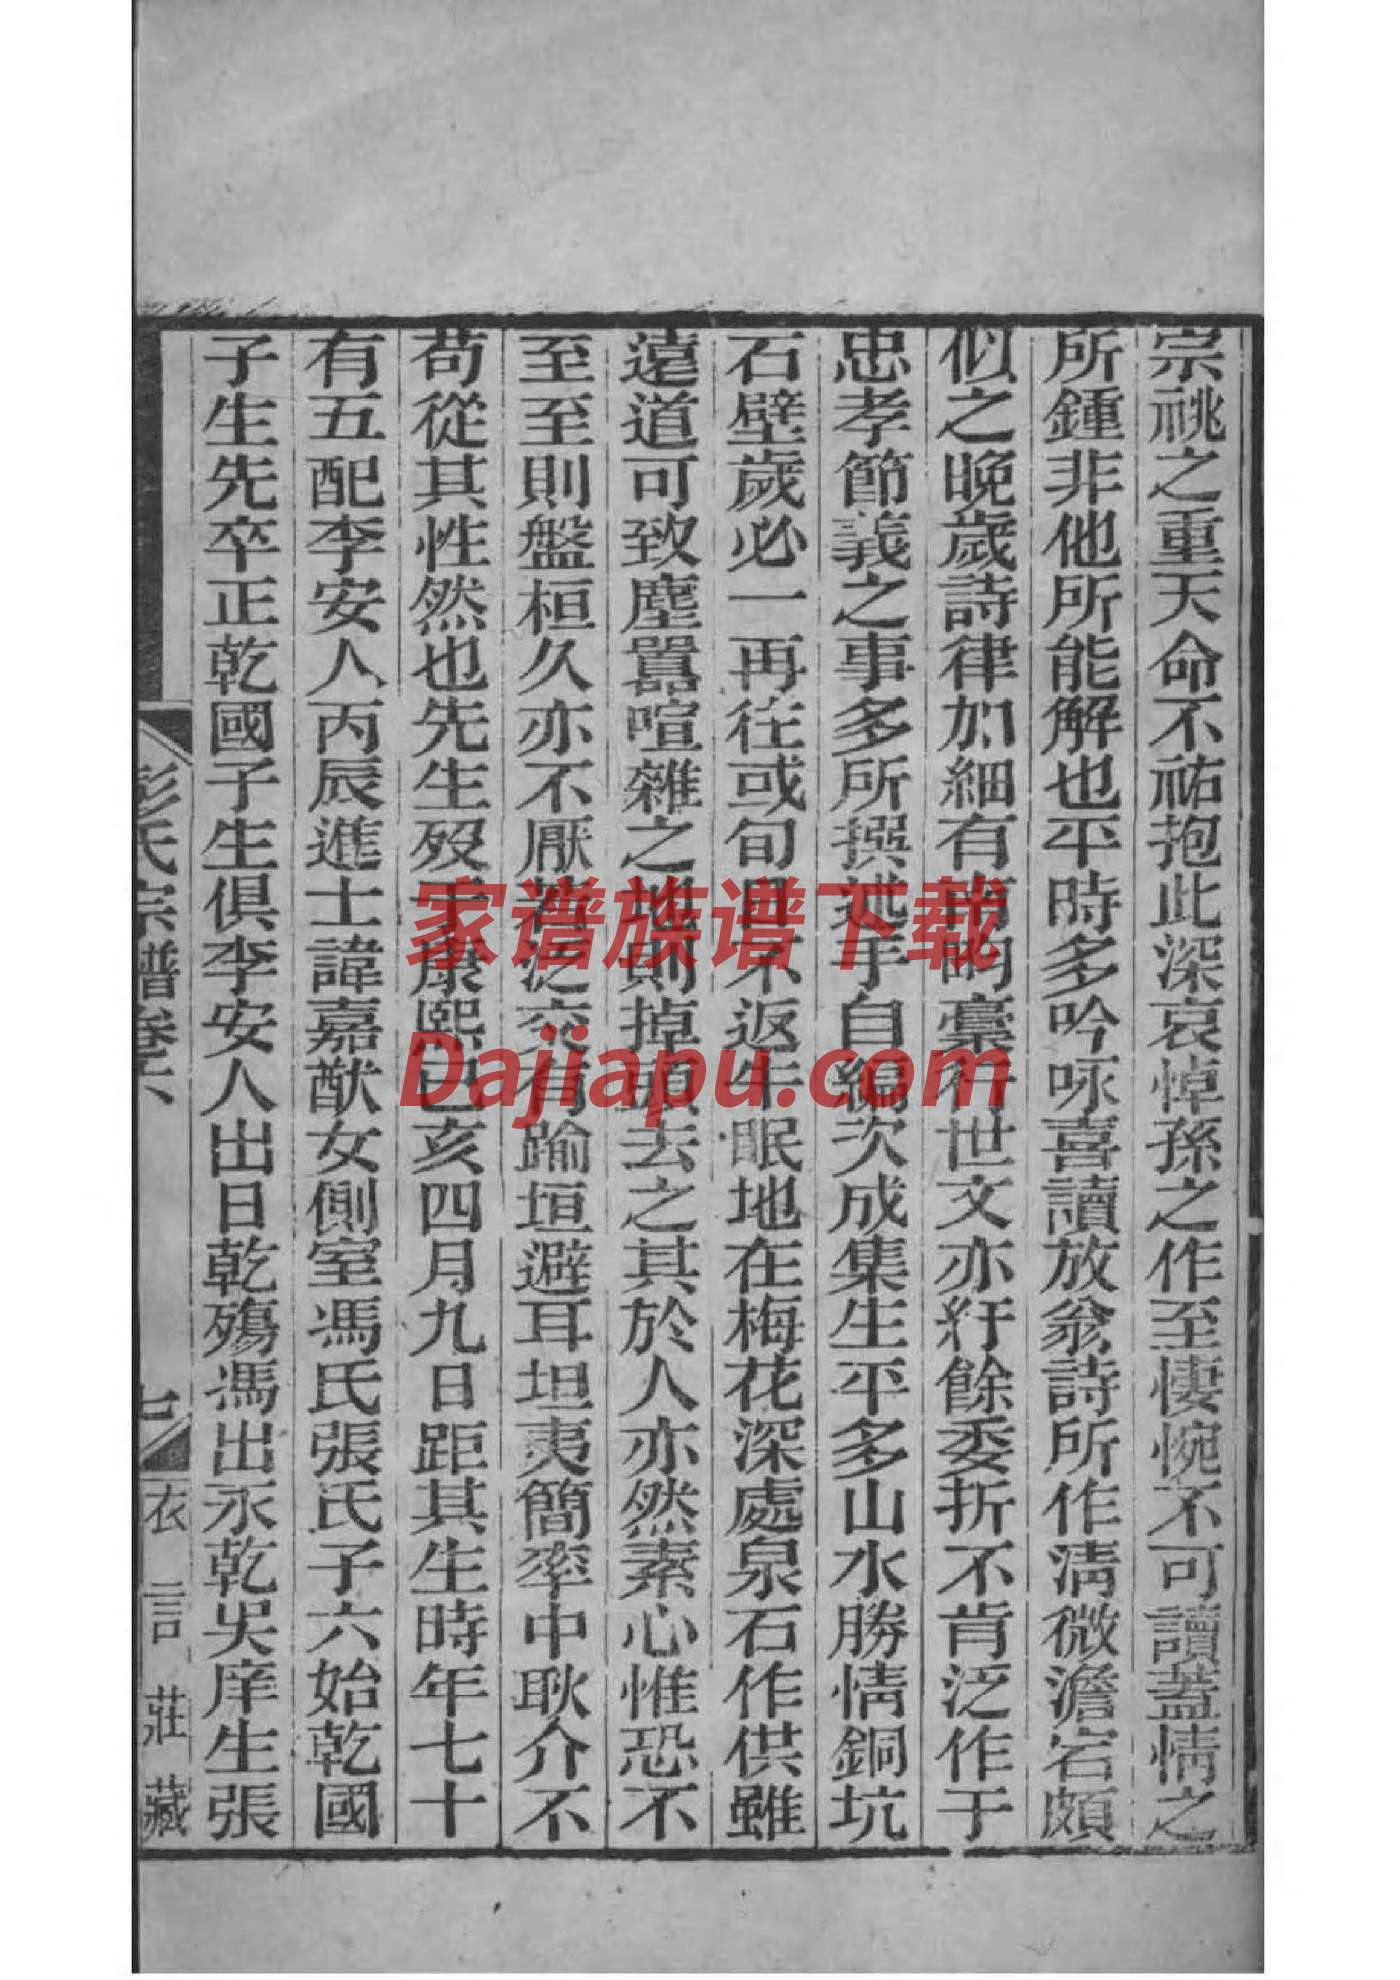 宗祧之重天命不祐抱此深哀悼孫之作至悽惋不可讀蓋情之
所鍾非他所能解也平時多吟咏喜讀放翁詩所作清微澹宕頗
似之晚歲詩律加細有南畇藁行世文亦紆餘委折不肯泛作于
忠孝節義之事多所撰述手自編次成集生平多山水勝情銅坑
石壁歲必一再往或旬日不返午眠地在梅花深處泉石作供雖
遠道可致塵囂喧雜之地則掉頭去之其於人亦然素心惟恐不
至至則盤桓久亦不厭若泛交有踰垣避耳坦夷簡率中耿介不
苟從其性然也先生歿于康熙己亥四月九日距其生時年七十
有五配李安人丙辰進士諱嘉猷女側室馮氏張氏子六始乾國
子生先卒正乾國子生俱李安人出日乾殤馮出永乾吳庠生張
彭氏宗譜卷六
七
衣言莊藏
家谱族谱下载
Dajiapu.com